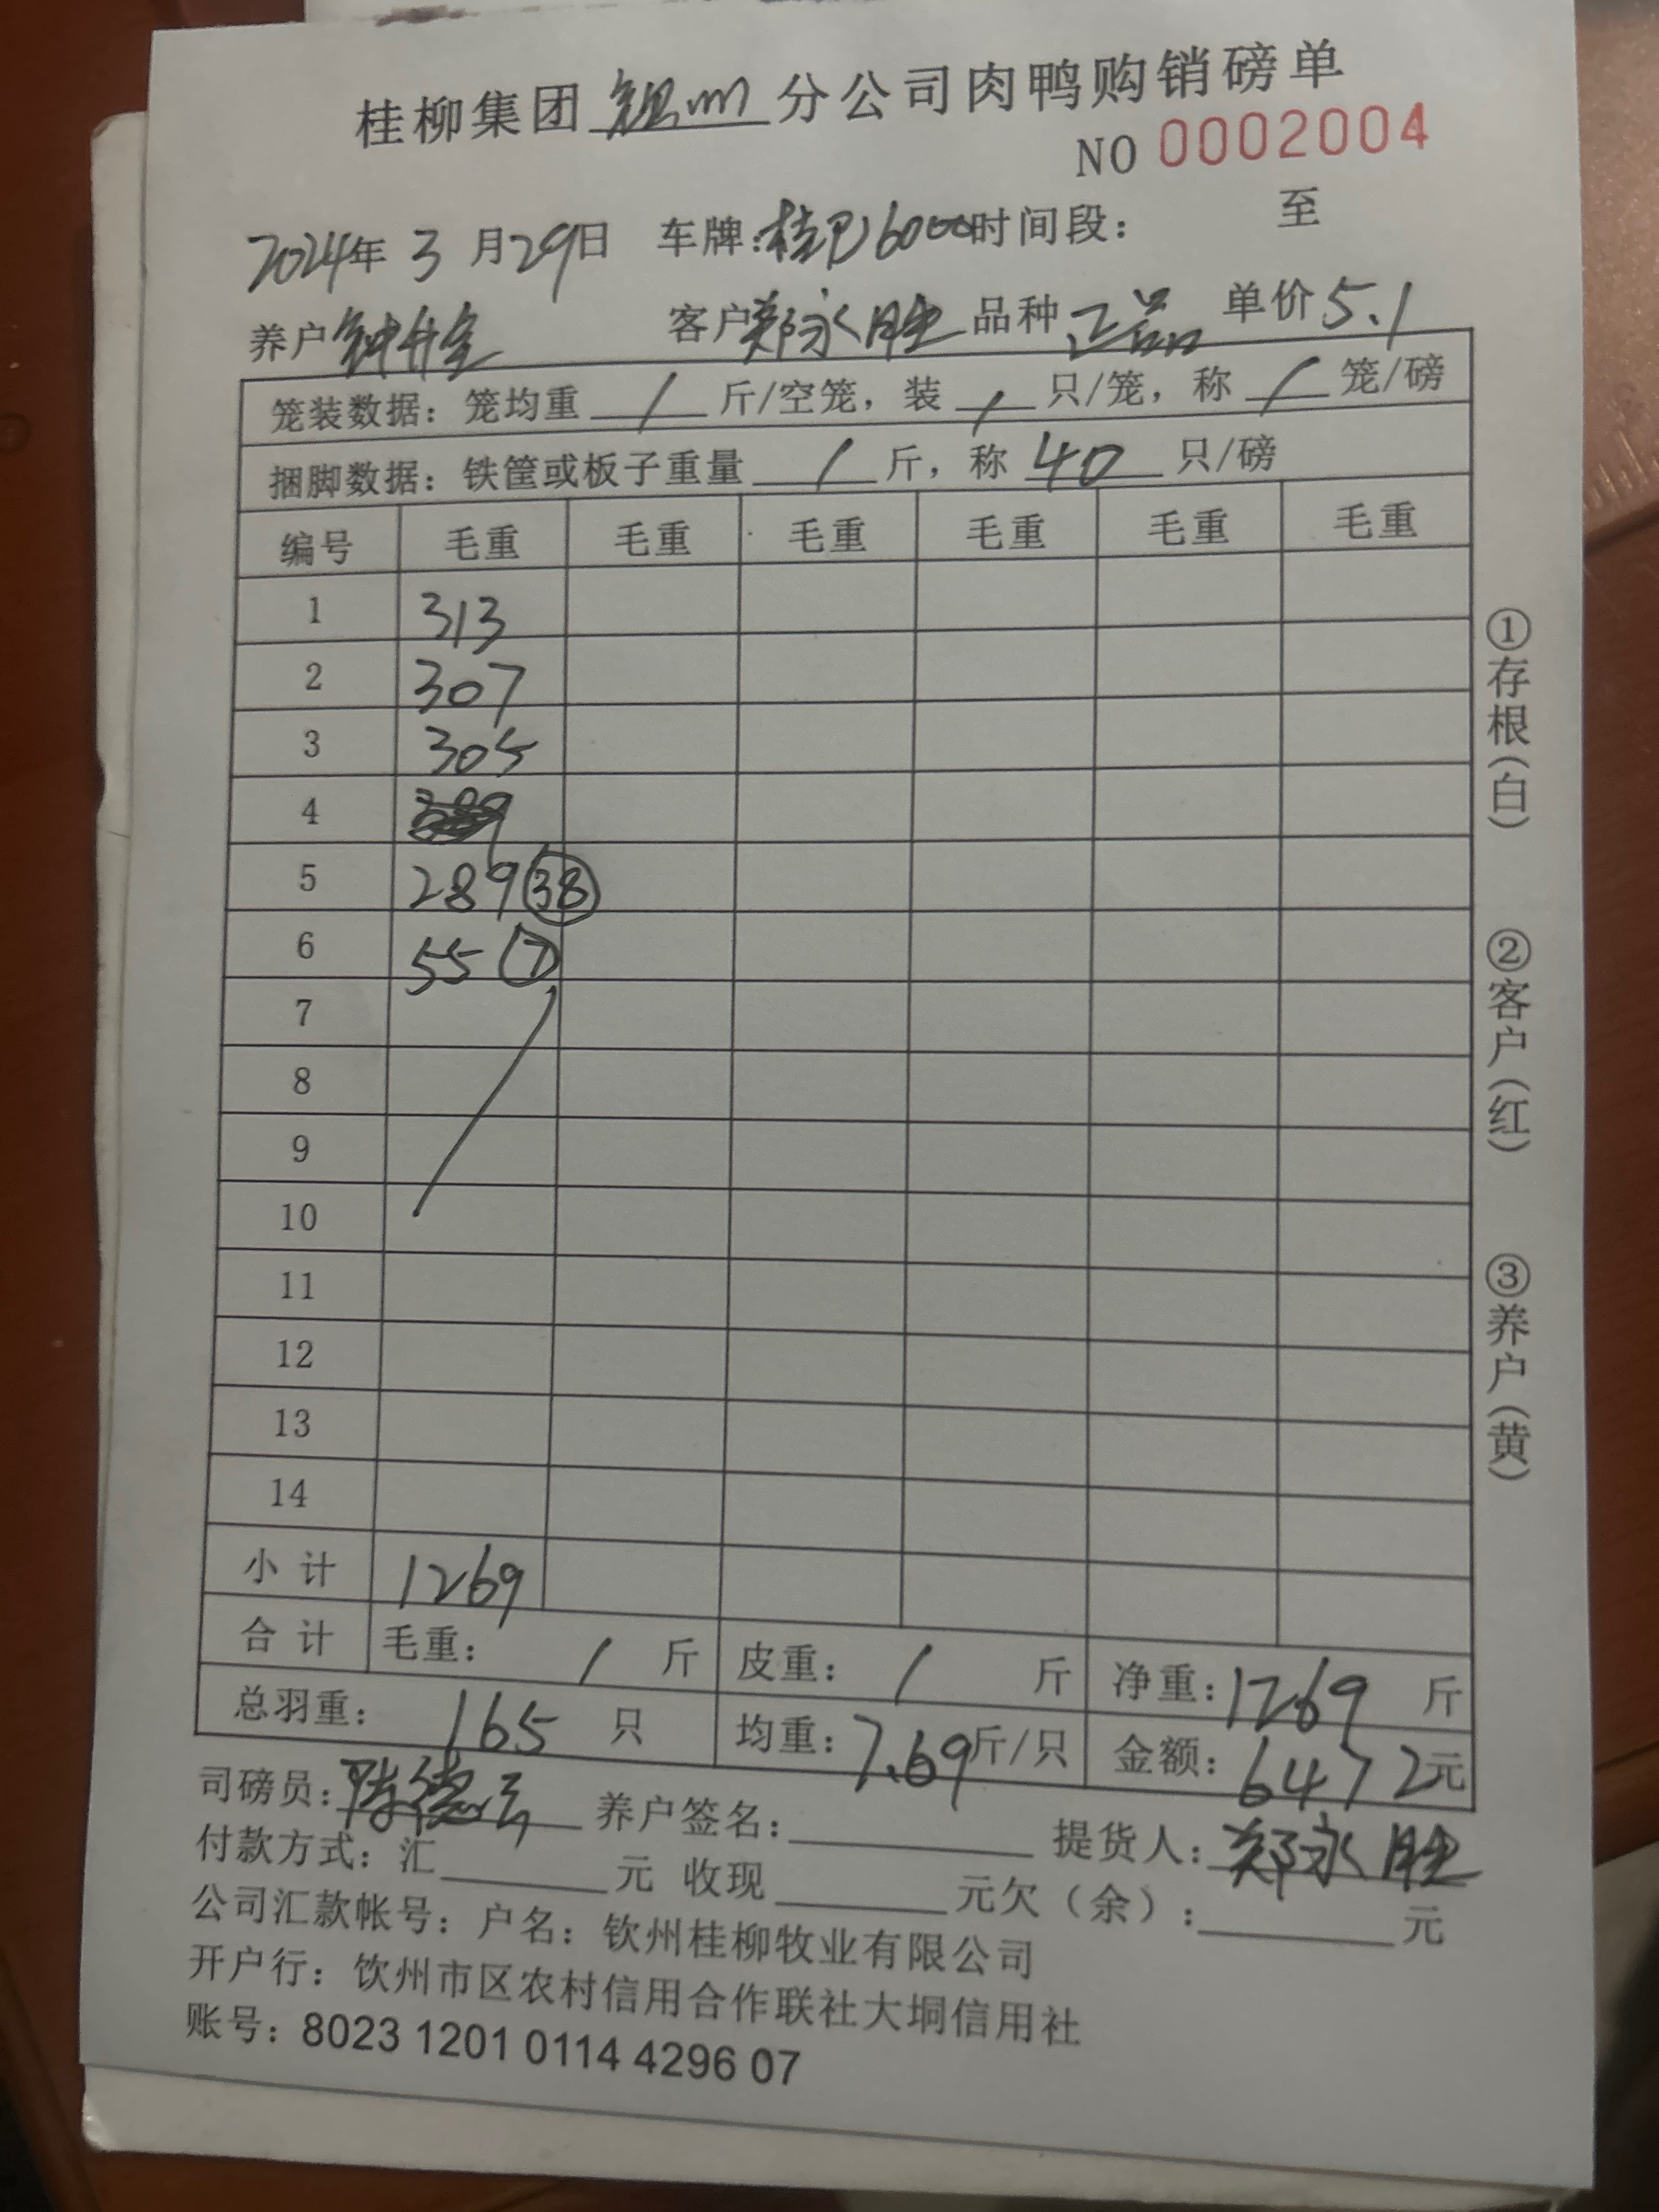 桂柳集团钦州分公司肉鸭购销磅单
NO 0002004
2024年 3 月29日 车牌:桂 6000时间段： 至
养户钟 客户郑永胜 品种正品 单价5.1
笼装数据：笼均重 / 斤/空笼，装 / 只/笼，称 / 笼/磅
捆脚数据：铁筐或板子重量 / 斤，称 40 只/磅
编号 毛重 毛重 毛重 毛重 毛重 毛重
1 313
2 307
3 305
4
5 289 38
6 55 7
7
8
9
10
11
12
13
14
小计 1269
合计 毛重： / 斤 皮重： / 斤 净重：1269 斤
总羽重： 165 只 均重：7.69斤/只 金额：6472元
司磅员：陈德 养户签名： 提货人：郑永胜
付款方式：汇 元 收现 元欠（余）： 元
公司汇款帐号：户名：钦州桂柳牧业有限公司
开户行：饮州市区农村信用合作联社大垌信用社
账号：8023 1201 0114 4296 07
①存根（白）
②客户（红）
③养户（黄）